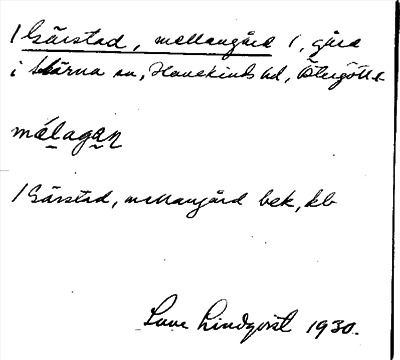 1 Gärstad, mellangård 1, gård
i Skärna sn, Hanekinds hd, Östergötl.
mélagan
1 Gärstad, mellangård bek, kb
Sune Lindqvist 1930.